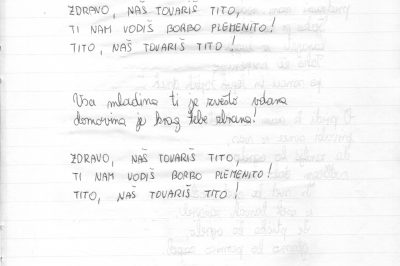 ZDRAVO, NAŠ TOVARIŠ TITO,
TI NAM VODIŠ BORBO PLEMENITO!
TITO, NAŠ TOVARIŠ TITO!
Vsa mladina ti je zvesto vdana
domovina je krog tebe zbrana!
ZDRAVO, NAŠ TOVARIŠ TITO,
TI NAM VODIŠ BORBO PLEMENITO!
TITO, NAŠ TOVARIŠ TITO!